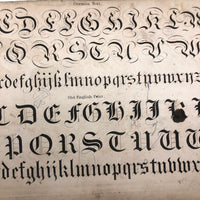 German Text.
C D E F G H I K L M
Q R S T U V W
defghijklmnopqrstuvwxyz
Old English, Ornr.
C D E F G H I J K
P Q R S T U V
defghijklmnopqrstuvwx